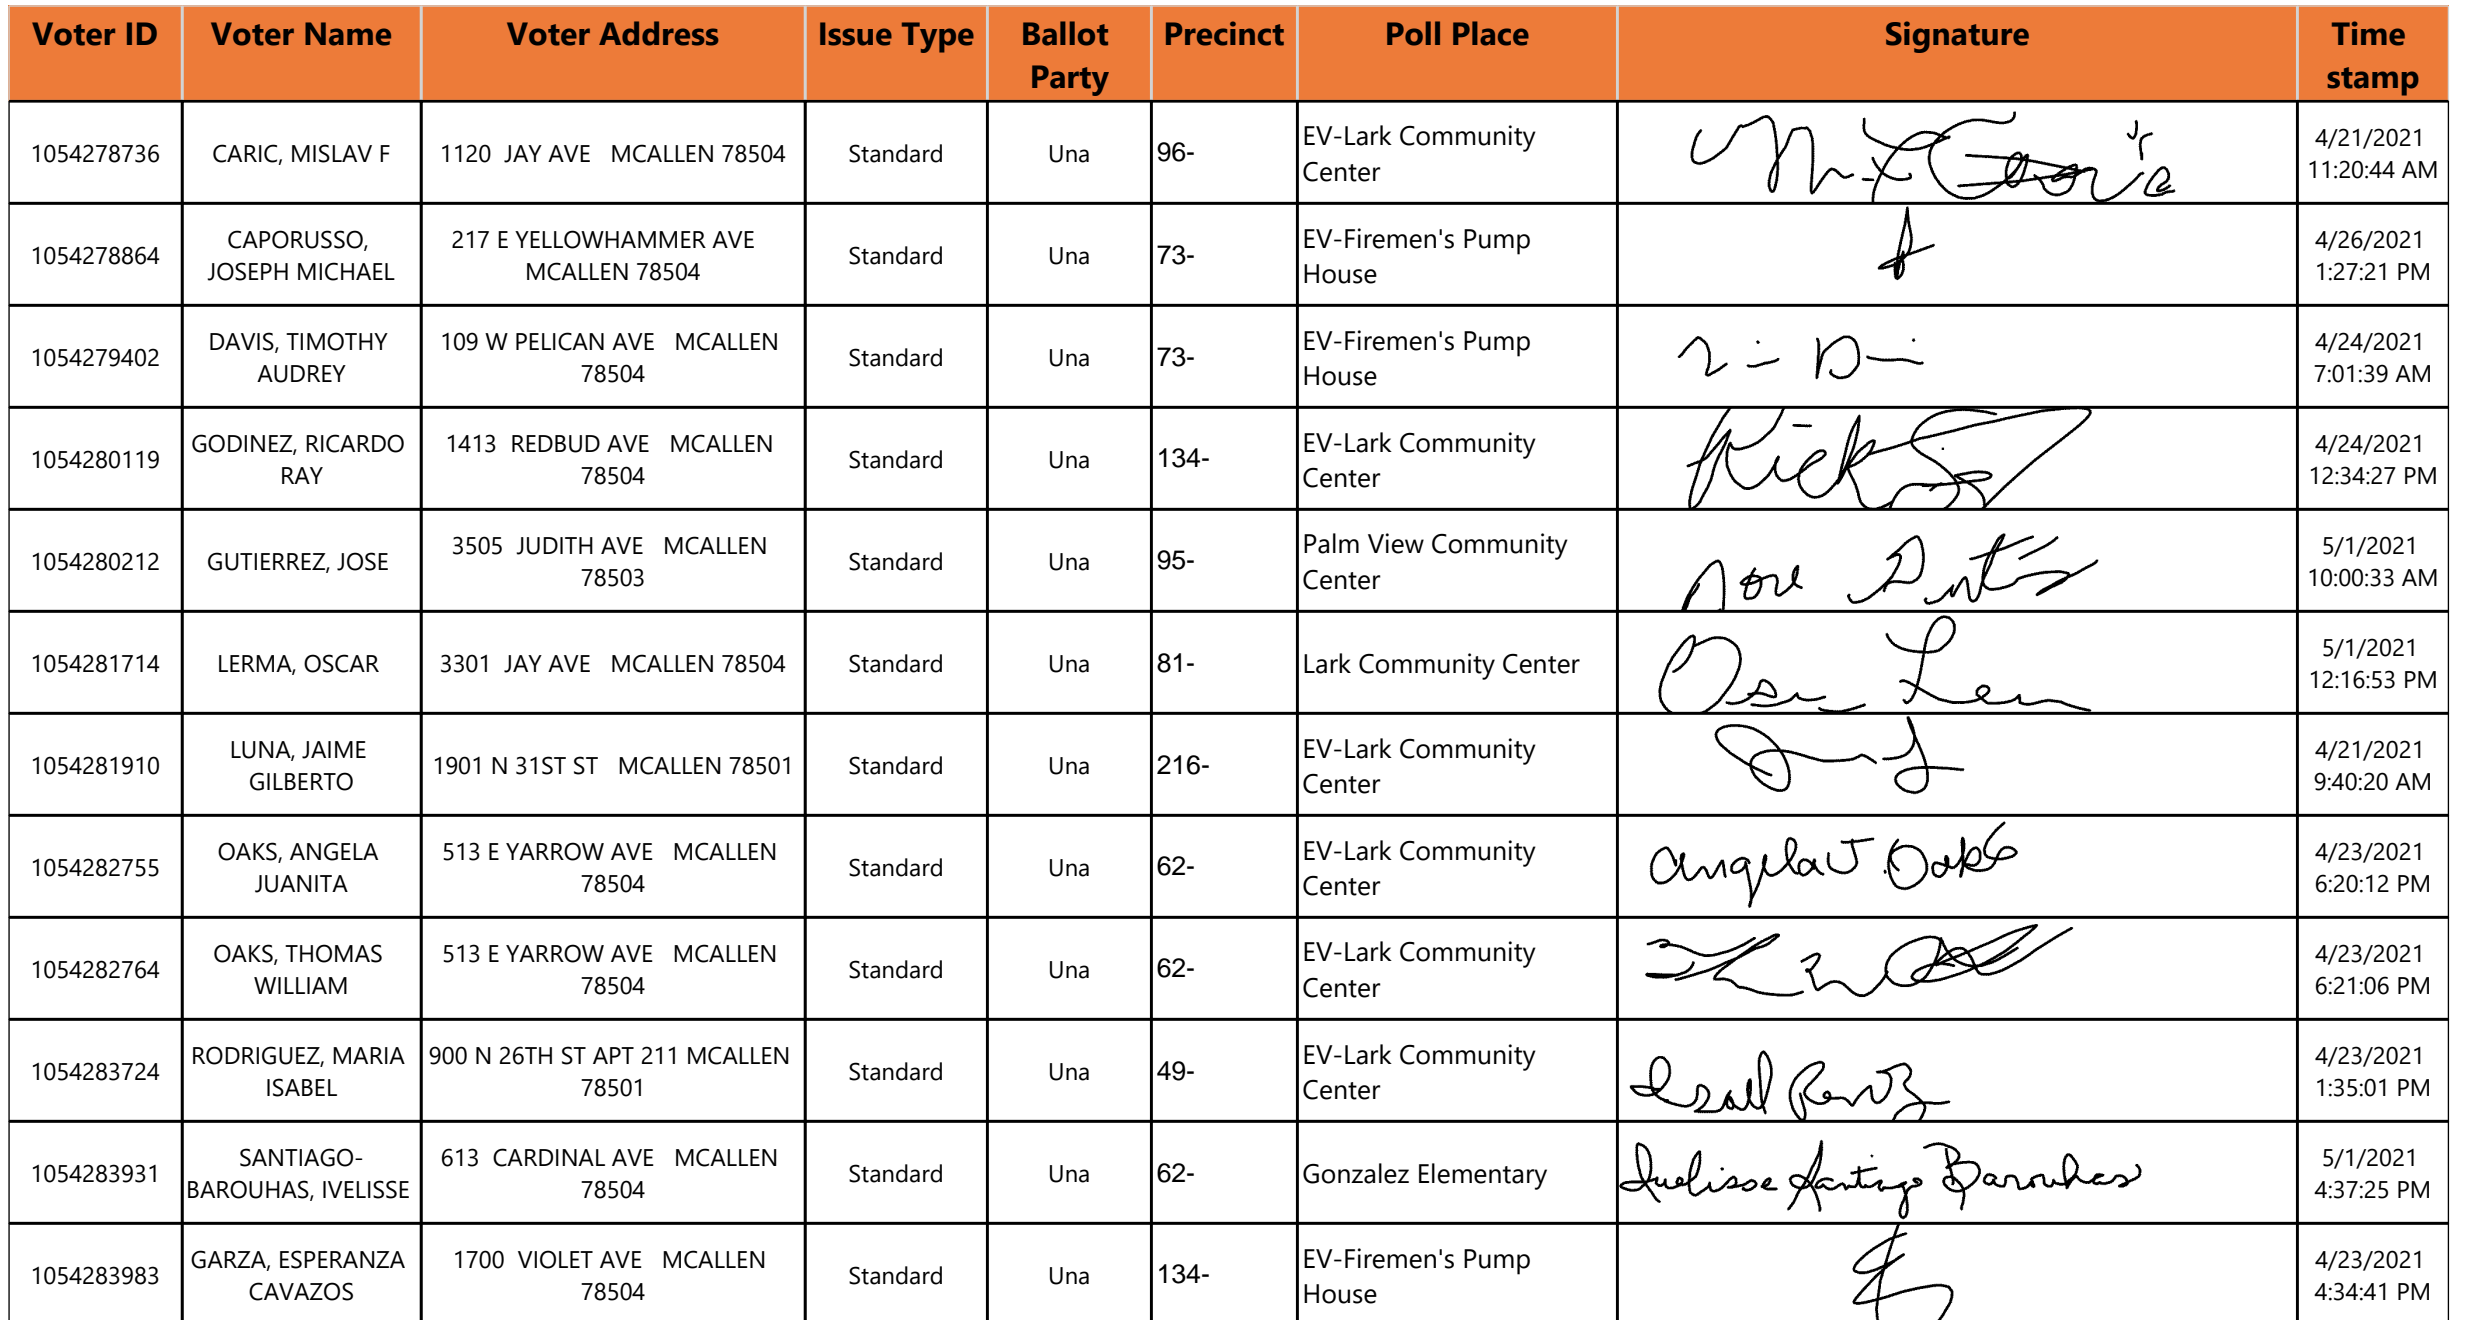 Voter ID Voter Name Voter Address Issue Type Ballot Party Precinct Poll Place Signature Time stamp
1054278736 CARIC, MISLAV F 1120 JAY AVE MCALLEN 78504 Standard Una 96- EV-Lark Community Center 4/21/2021 11:20:44 AM
1054278864 CAPORUSSO, JOSEPH MICHAEL 217 E YELLOWHAMMER AVE MCALLEN 78504 Standard Una 73- EV-Firemen's Pump House 4/26/2021 1:27:21 PM
1054279402 DAVIS, TIMOTHY AUDREY 109 W PELICAN AVE MCALLEN 78504 Standard Una 73- EV-Firemen's Pump House 4/24/2021 7:01:39 AM
1054280119 GODINEZ, RICARDO RAY 1413 REDBUD AVE MCALLEN 78504 Standard Una 134- EV-Lark Community Center Rick 4/24/2021 12:34:27 PM
1054280212 GUTIERREZ, JOSE 3505 JUDITH AVE MCALLEN 78503 Standard Una 95- Palm View Community Center 5/1/2021 10:00:33 AM
1054281714 LERMA, OSCAR 3301 JAY AVE MCALLEN 78504 Standard Una 81- Lark Community Center 5/1/2021 12:16:53 PM
1054281910 LUNA, JAIME GILBERTO 1901 N 31ST ST MCALLEN 78501 Standard Una 216- EV-Lark Community Center 4/21/2021 9:40:20 AM
1054282755 OAKS, ANGELA JUANITA 513 E YARROW AVE MCALLEN 78504 Standard Una 62- EV-Lark Community Center Angela J. Oaks 4/23/2021 6:20:12 PM
1054282764 OAKS, THOMAS WILLIAM 513 E YARROW AVE MCALLEN 78504 Standard Una 62- EV-Lark Community Center 4/23/2021 6:21:06 PM
1054283724 RODRIGUEZ, MARIA ISABEL 900 N 26TH ST APT 211 MCALLEN 78501 Standard Una 49- EV-Lark Community Center 4/23/2021 1:35:01 PM
1054283931 SANTIAGO-BAROUHAS, IVELISSE 613 CARDINAL AVE MCALLEN 78504 Standard Una 62- Gonzalez Elementary Ivelisse Santiago Barouhas 5/1/2021 4:37:25 PM
1054283983 GARZA, ESPERANZA CAVAZOS 1700 VIOLET AVE MCALLEN 78504 Standard Una 134- EV-Firemen's Pump House 4/23/2021 4:34:41 PM